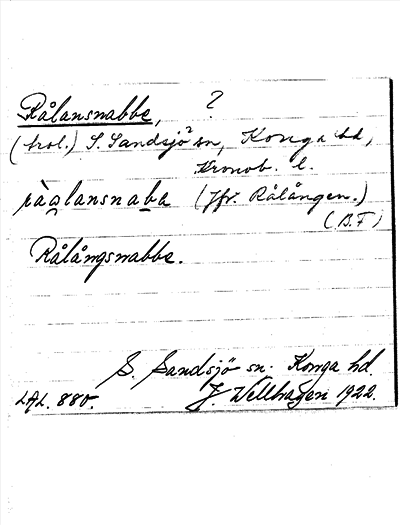 Rålansnabbe, ?
(trol.) S. Sandsjö sn, Konga hd,
Kronob. l.
ràglansnaba (Jfr. Rålången.)
(B.F)
Rålångsnabbe.
S. Sandsjö sn. Konga hd.
LAL. 880. J. Wellhagen 1922.